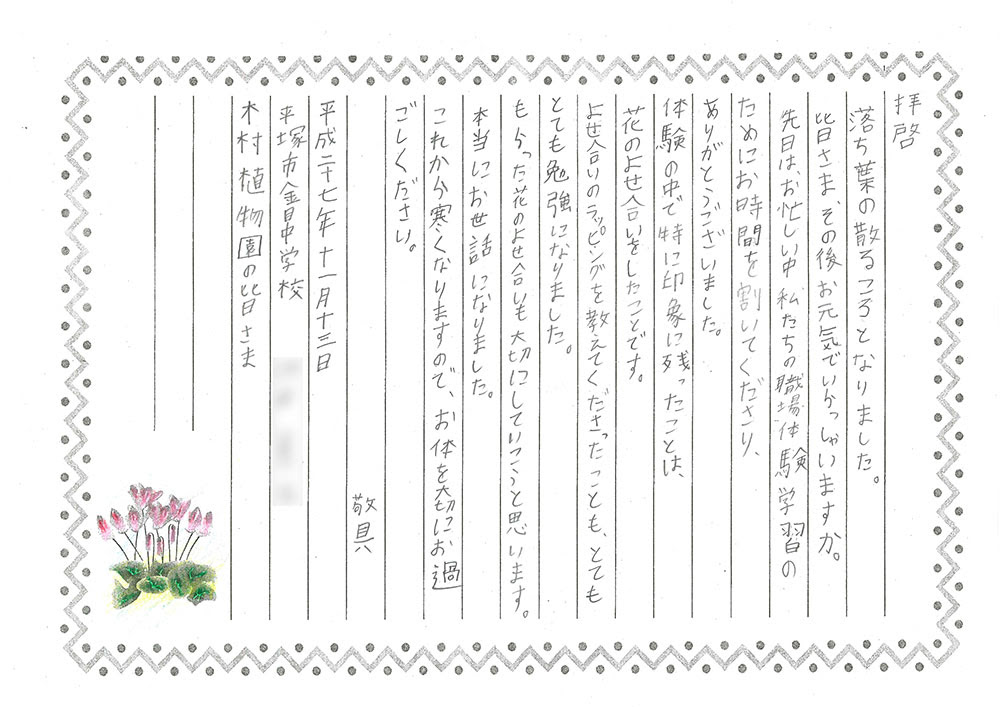 拝啓
落ち葉の散るころとなりました。
皆さま、その後お元気でいらっしゃいますか。
先日は、お忙しい中 私たちの職場体験学習の
ためにお時間を割いてくださり、
ありがとうございました。
体験の中で特に印象に残ったことは、
花のよせ合いをしたことです。
よせ合いのラッピングを教えてくださったことも、とても
とても勉強になりました。
もらった花のよせ合いも大切にしていこうと思います。
本当にお世話になりました。
これから寒くなりますので、お体を大切にお過
ごしください。
敬具
平成二十七年 十一月十三日
平塚市金目中学校
木村植物園の皆さま